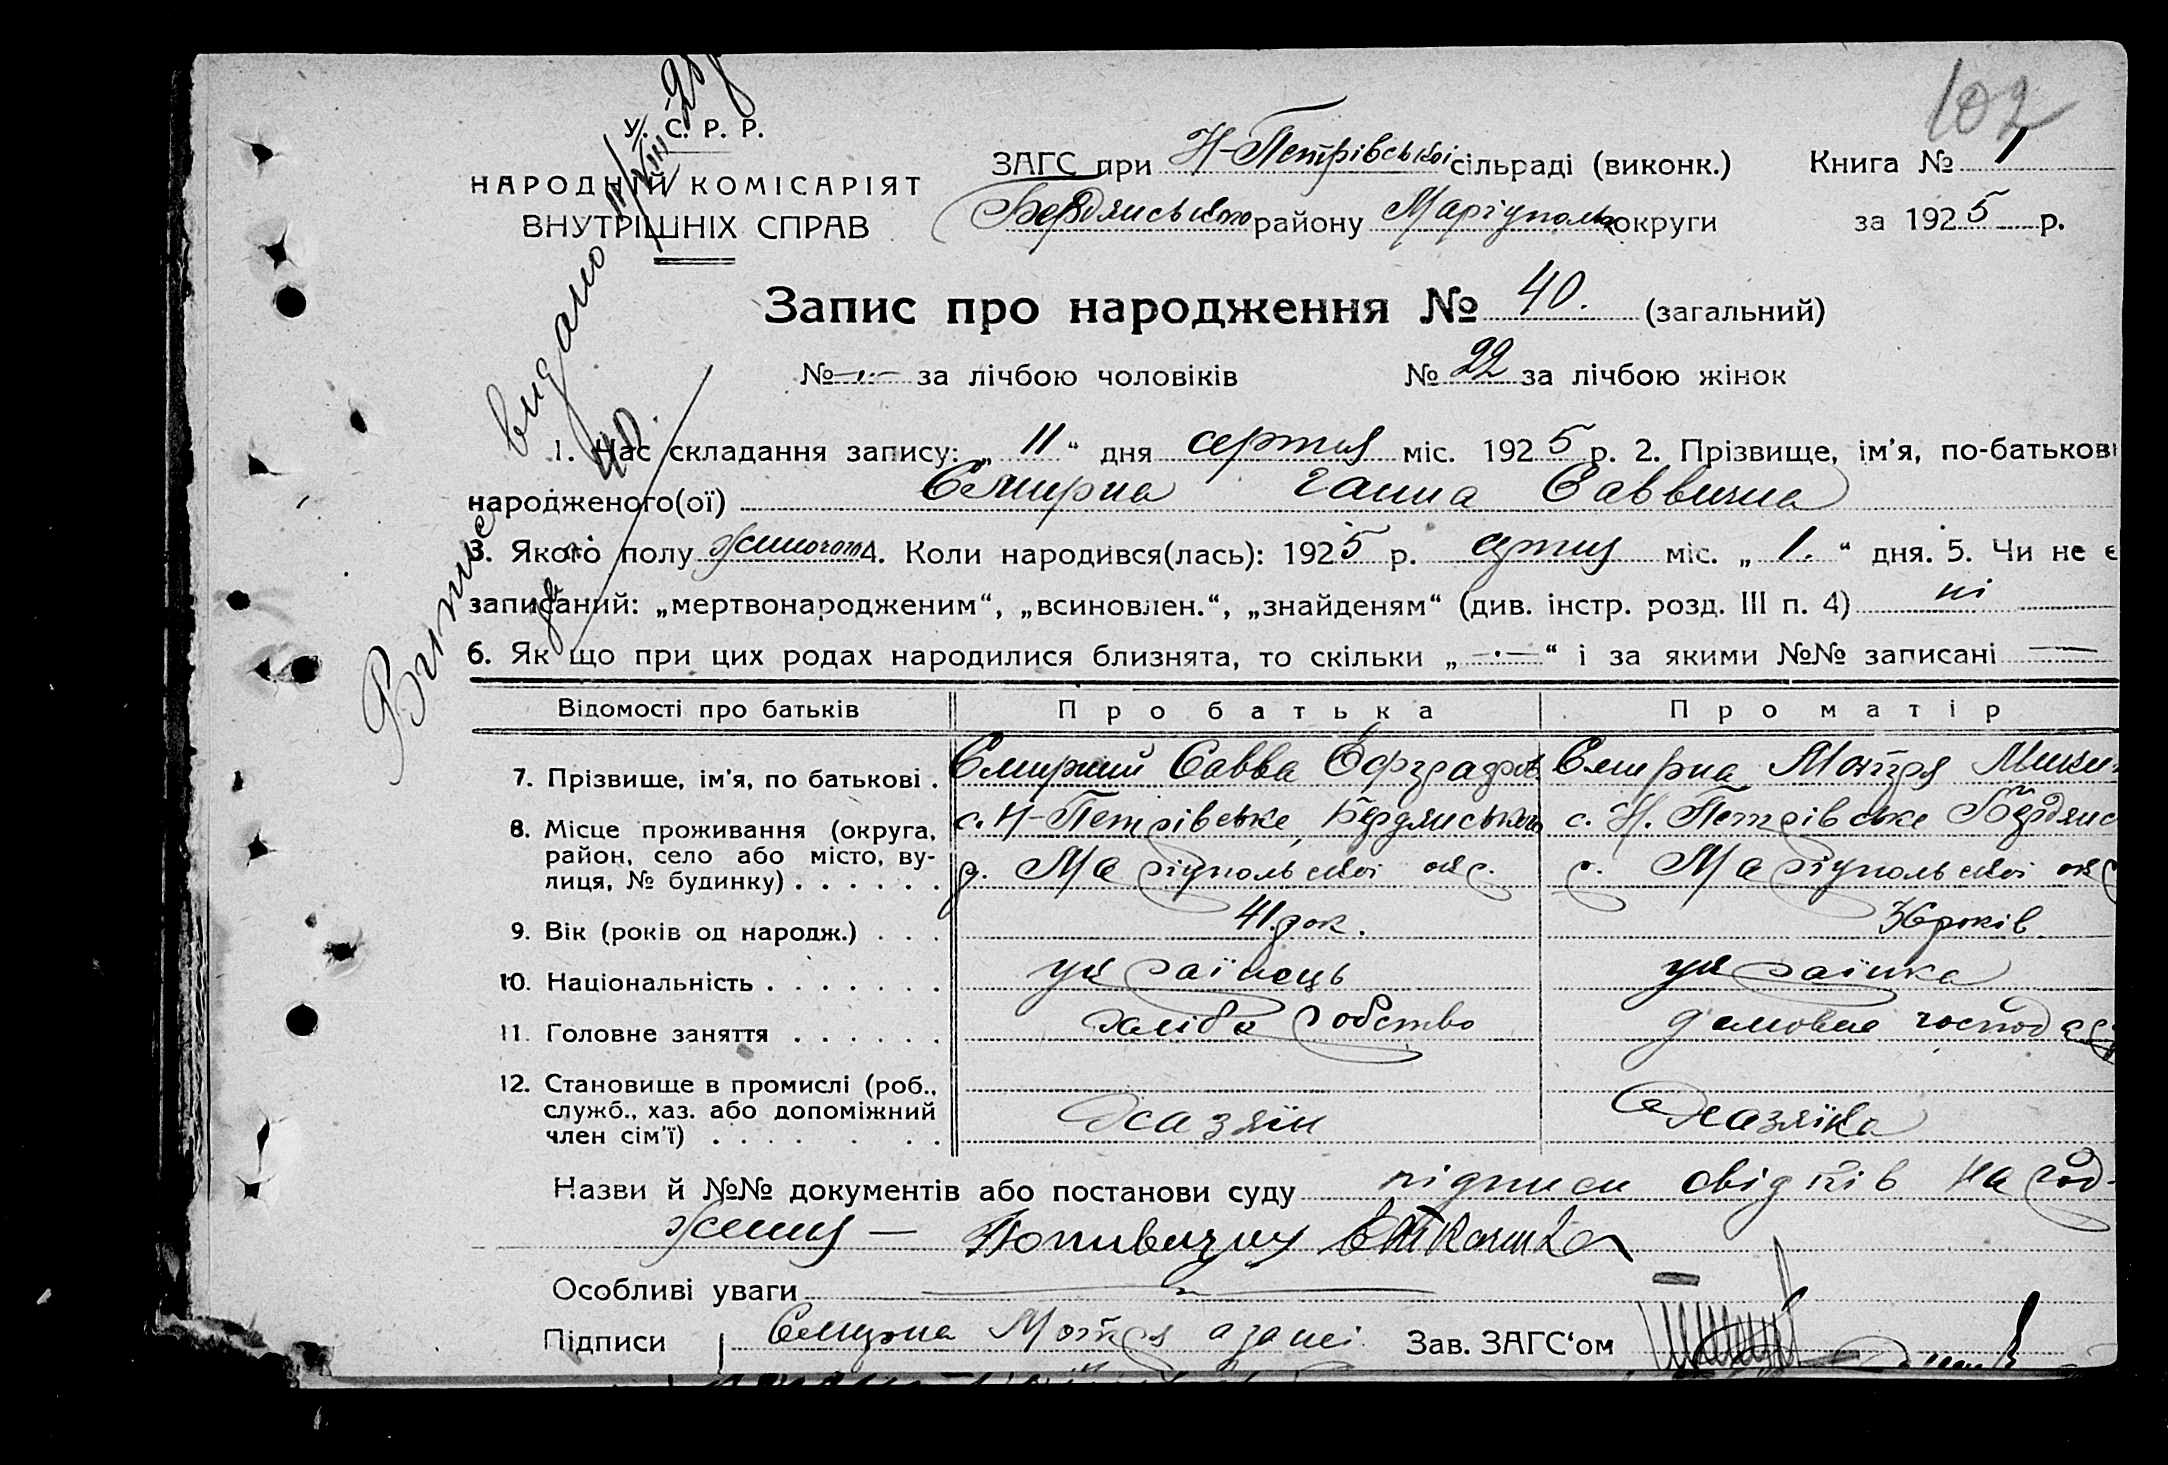 102
У. С. Р. Р.
НАРОДНІЙ КОМІСАРІЯТ
ВНУТРІШНІХ СПРАВ
ЗАГС при Н-Петрівській сільраді (виконк.) Книга № 1
Бердянського району Маріупольс округи за 1925 р.
Витис видано
за № 40.
Запис про народження № 40. (загальний)
№ — за лічбою чоловіків № 22 за лічбою жінок
1. Час складання запису: „11“ дня серпня міс. 1925 р. 2. Прізвище, ім'я, по-батькові
народженого(ої) Смирна Ганна Саввична
3. Якого полу жіночого 4. Коли народився(лась): 1925 р. серпня міс. „1.“ дня. 5. Чи не є
записаний: „мертвонародженим“, „всиновлен.“, „знайденям“ (див. інстр. розд. III п. 4) ні
6. Як що при цих родах народилися близнята, то скільки „—·—“ і за якими №№ записані —
Відомості про батьків Про батька Про матір
7. Прізвище, ім'я, по батькові . Смирний Савва Смирна Мотря
8. Місце проживання (округа, район, село або місто, вулиця, № будинку) . . . . . .
с. Н-Петрівське, Бердянського с. Н. Петрівське Бердянс
р. Маріупольскої окр. р. Маріупольскої окр
9. Вік (років од народж.) . . . 41 рок. 36 років
10. Національність . . . . . . . українець українка
11. Головне заняття . . . . . . хліборобство домовне господар
12. Становище в промислі (роб., служб., хаз. або допоміжний член сім'ї) . . . . . . . хазяїн хазяїка
Назви й №№ документів або постанови суду підписи свідків народ-
ження —
Особливі уваги —
Підписи Смирна Мотря Зав. ЗАГС'ом